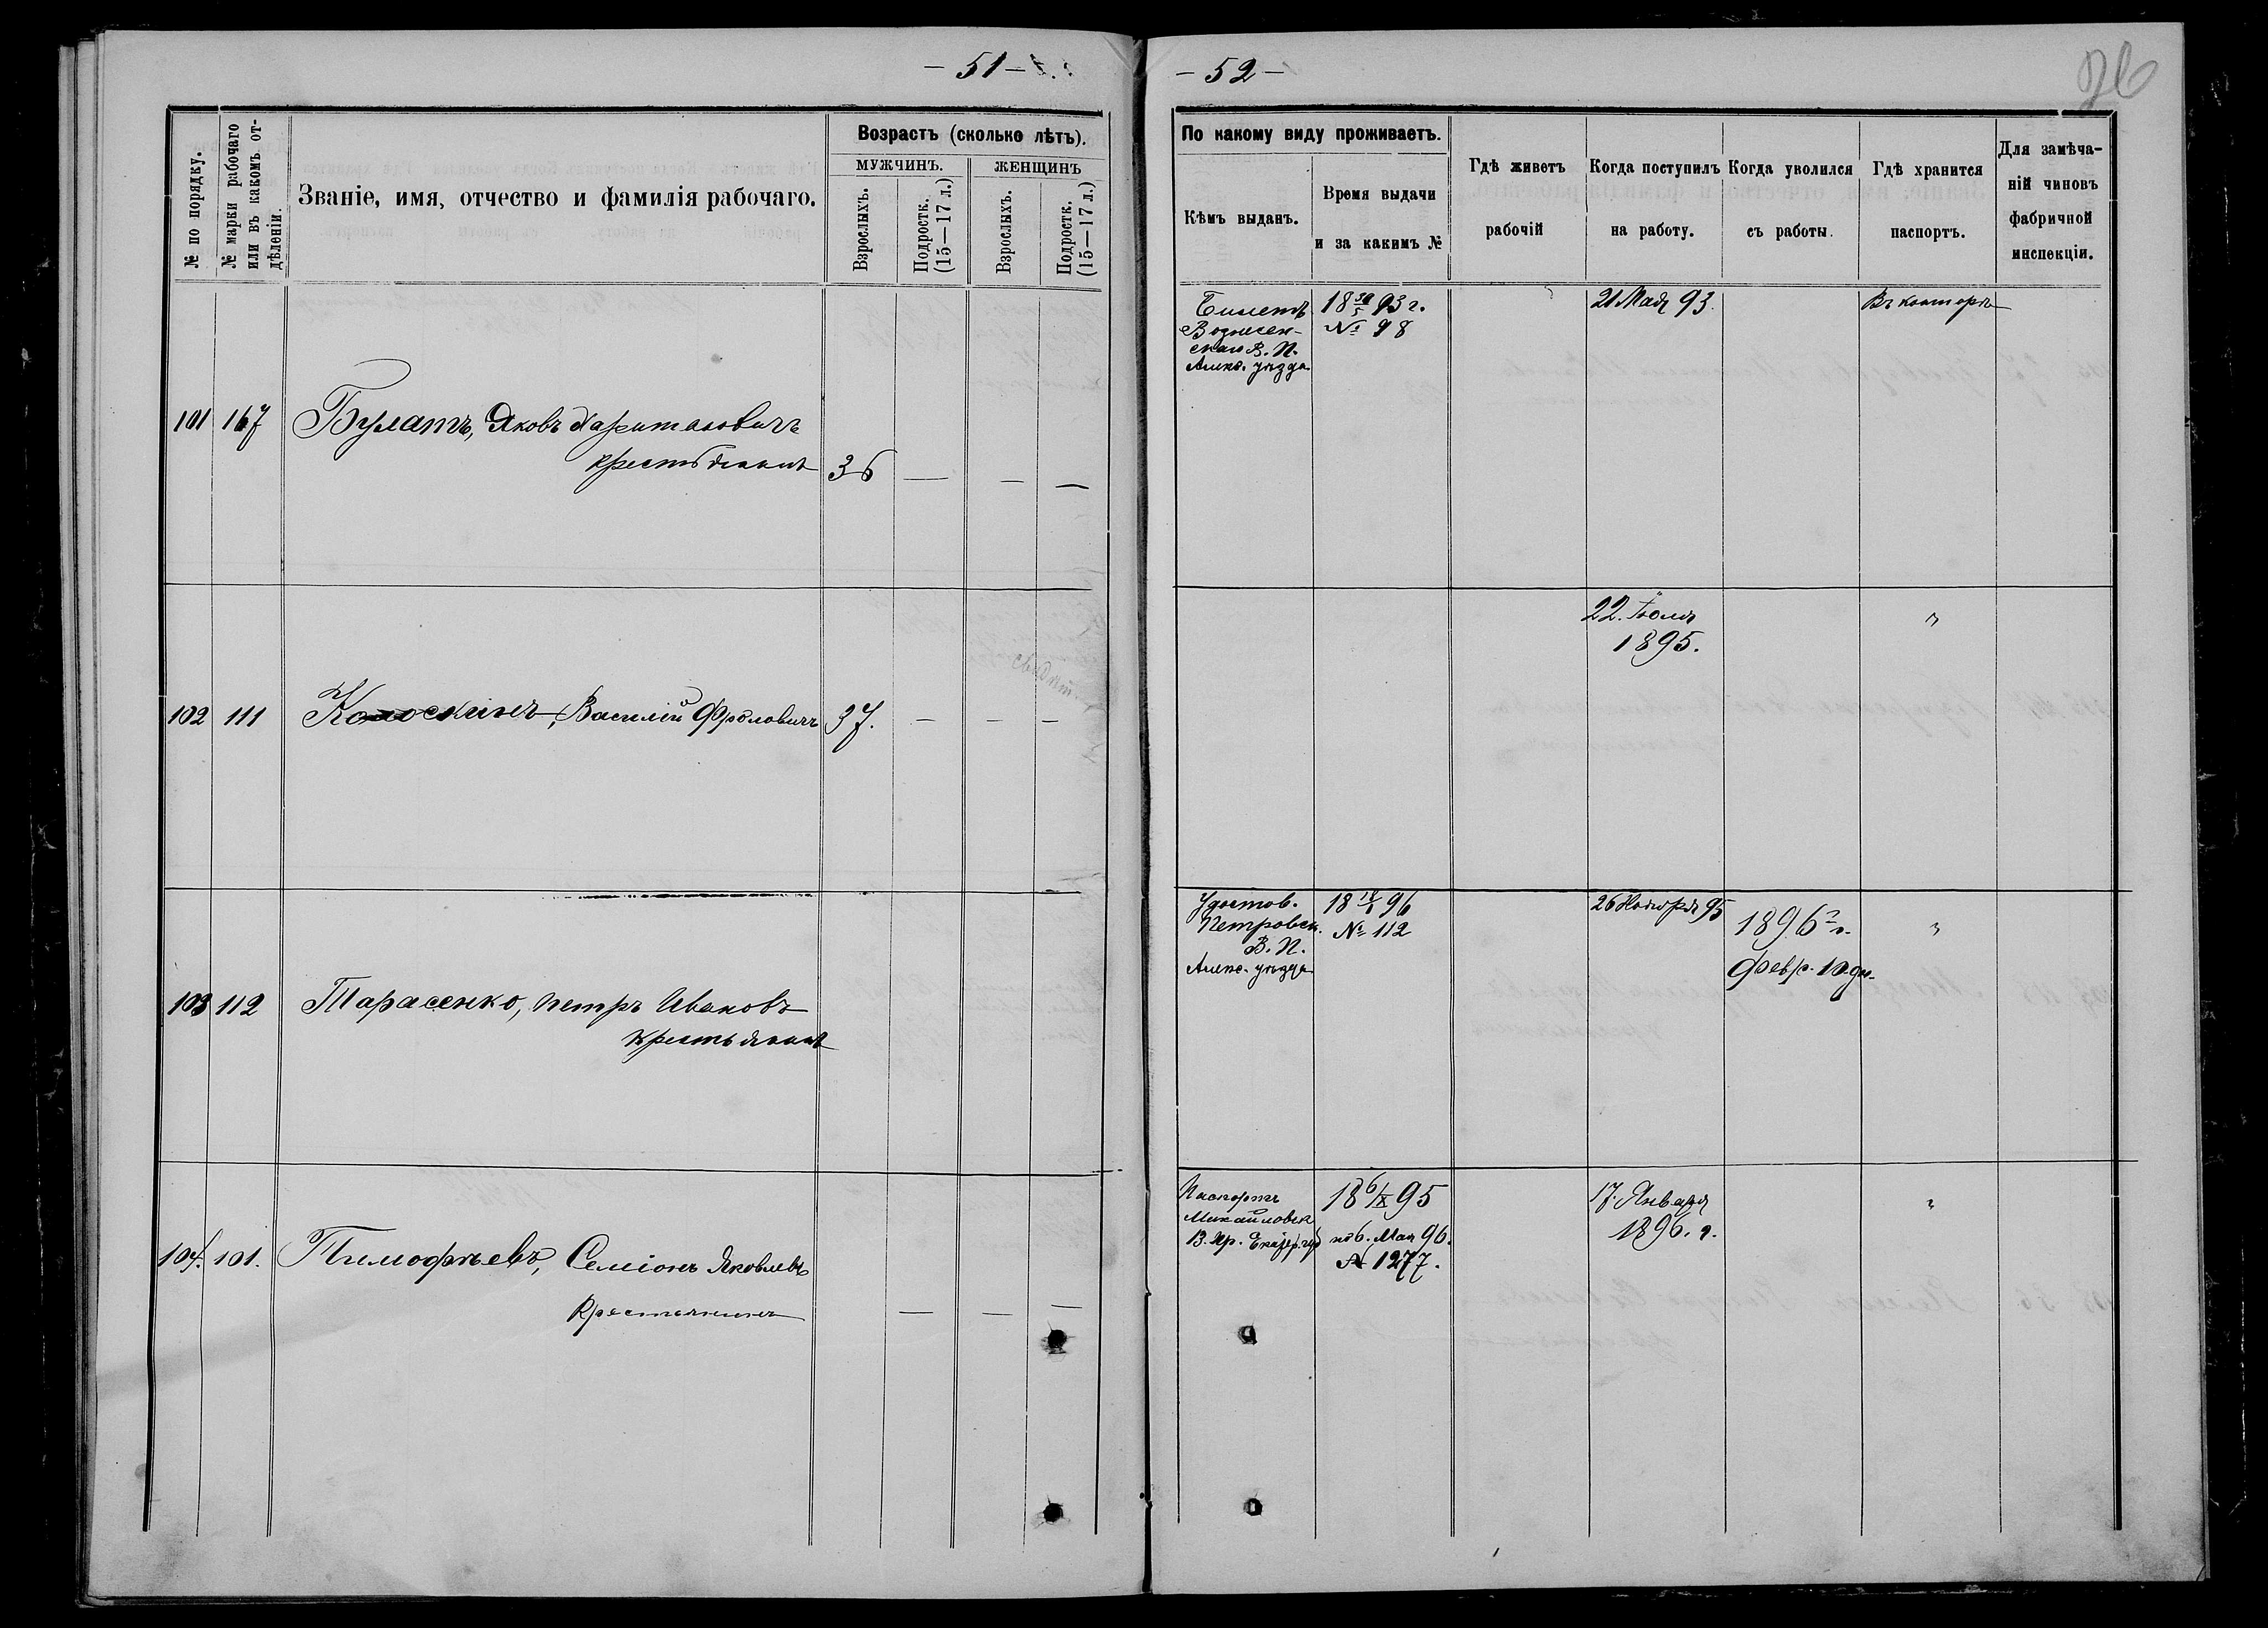 — 51 —
№ по порядку.
№ марки рабочаго
или въ какомъ от-
дѣленіи.
Званіе, имя, отчество и фамилія рабочаго.
Возрастъ (сколько лѣтъ).
МУЖЧИНЪ.
ЖЕНЩИНЪ
Взрослыхъ.
Подростк.
(15—17 л.)
Взрослыхъ.
Подростк.
(15—17 л.)
101 167 Булатъ, Яковъ Харитоновичъ
крестьянинъ 36 — — —
102 111 Колоскинъ, Василій Фроловичъ 37. — — —
103 112 Тарасенко, Петръ Ивановъ
крестьянинъ
104. 101. Тимофѣевъ, Семіонъ Яковлевъ
Крестьянинъ — — —
— 52 —
26
По какому виду проживаетъ.
Кѣмъ выданъ.
Время выдачи
и за какимъ №
Гдѣ живетъ
рабочій
Когда поступилъ
на работу.
Когда уволился
съ работы.
Гдѣ хранится
паспортъ.
Для замѣча-
ній чиновъ
фабричной
инспекціи.
Билетъ 18 30/5 93 г. 21 Мая 93. Въ конторѣ
Вознесен- № 98
скаго В. П.
Алекс. уѣзда
22. Іюля "
1895.
Удостов. 18 18/1 96 26 Ноября 95 1896 г. "
Петровск. № 112
В. П. Февр. 10 дн.
Алекс. уѣзда
Паспортъ 18 6/IX 95 17. Января "
Михайловск 1896. г.
В. Пр. Екатер. губ по 6. Мая 96.
№ 1277.